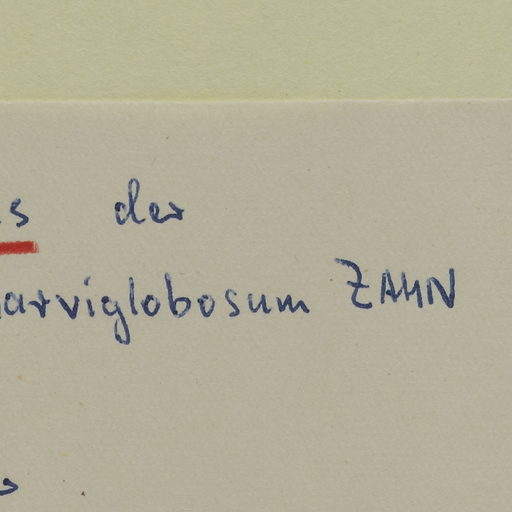 s der
arviglobosum ZAHN